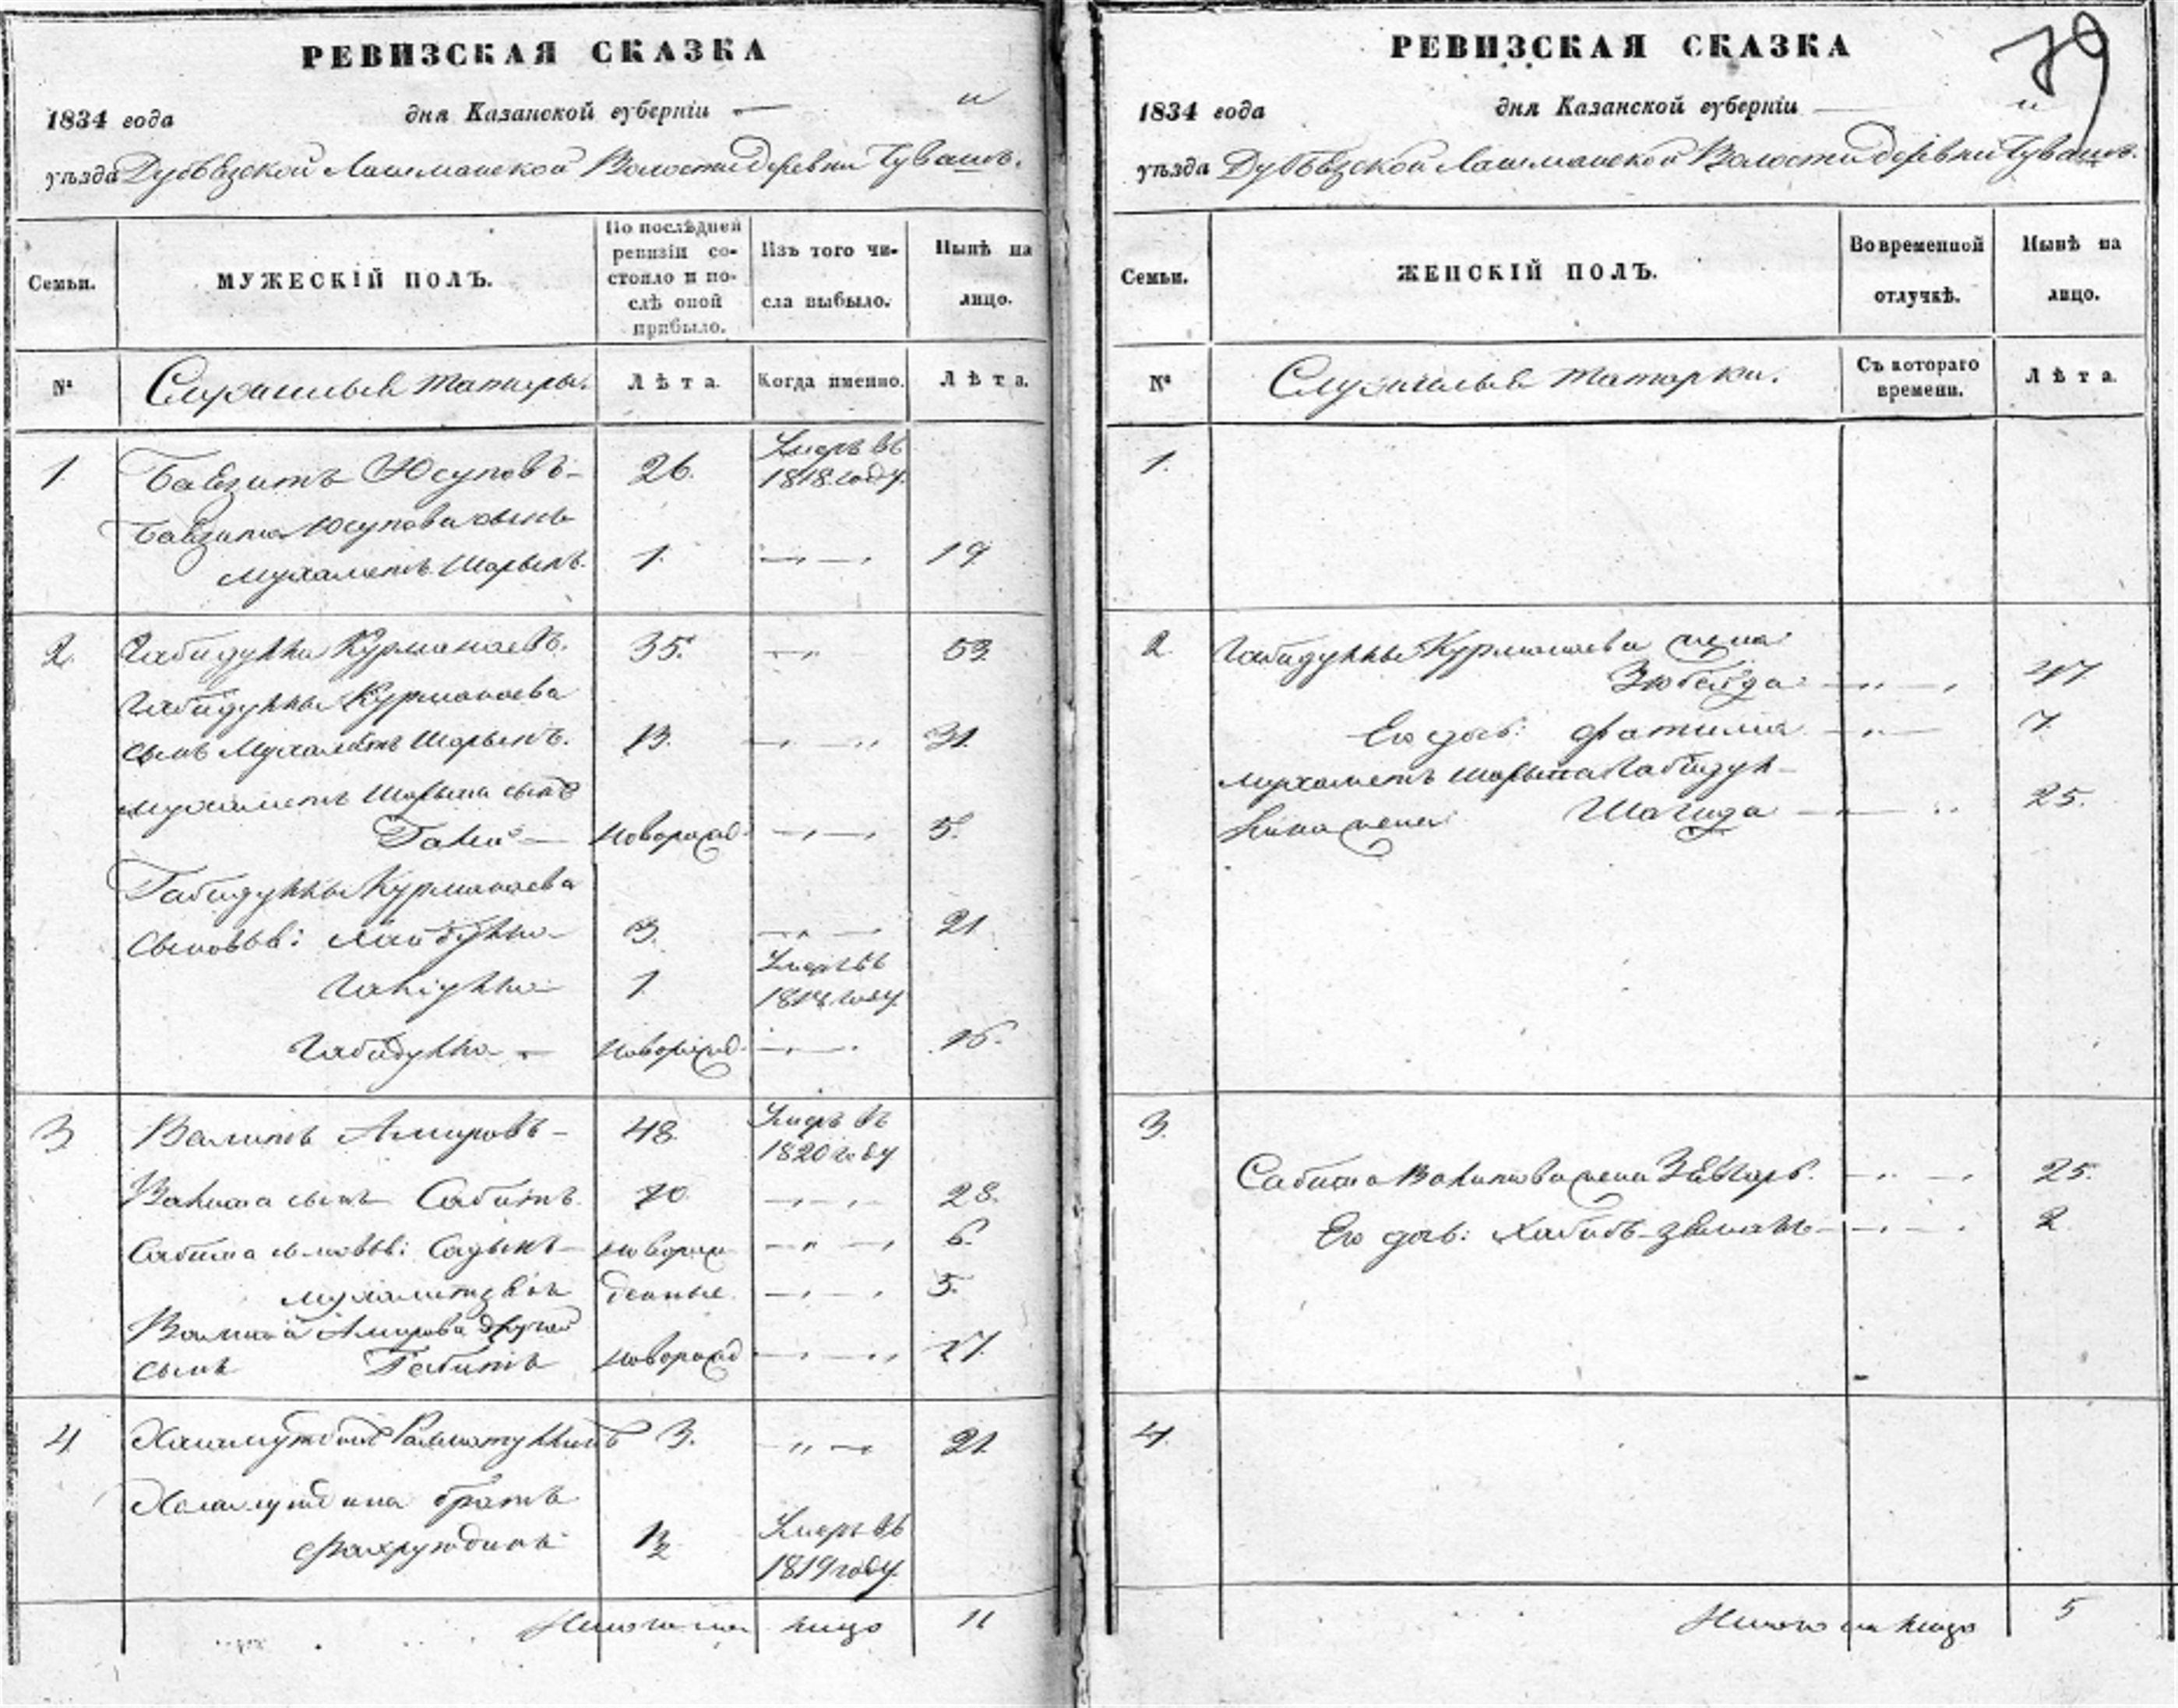 РЕВИЗСКАЯ СКАЗКА
1834 года дня Казанской губерніи — и
уѣзда Лашманской Волости деревни Чувашъ.
Семьи. МУЖЕСКІЙ ПОЛЪ. По послѣдней ревизіи состояло и послѣ оной прибыло. Изъ того числа выбыло. Нынѣ на лицо.
№ Служилыя татары. Лѣта. Когда именно. Лѣта.
1. Баязитъ Юсуповъ 26. Умеръ въ 1818. году.
Баязита Юсупова сынъ
Мухаметъ Шарыпъ. 1. 19
2. Габидулла Курманаевъ. 35. 53.
Габидуллы Курманаева
сынъ Мухаметъ Шарыпъ. 13. 31.
Мухаметъ Шарыпа сынъ
Гали новорожд. 5.
Габидуллы Курманаева
сыновья: Лайбулла 3. 21
1. Умеръ въ
году.
новорожд. 16.
3. Валитъ Амировъ 48. Умеръ въ
1820 году
Валита сынъ Сабитъ. 10. 28.
Сабита сыновья: Садыкъ новорож 6.
денные. 5.
Валита Амирова другой
сынъ Габитъ новорожд 17.
4. 3. 21.
братъ
Фахрутдинъ 1/2 Умеръ въ
1819 году.
Итого на лицо 11
79
РЕВИЗСКАЯ СКАЗКА
1834 года дня Казанской губерніи — и
уѣзда Лашманской Волости деревни Чувашъ.
Семьи. ЖЕНСКІЙ ПОЛЪ. Во временной отлучкѣ. Нынѣ на лицо.
№ Служилыя татарки. Съ котораго времени. Лѣта.
1.
2. Габидуллы Курманаева жена
Зюбейда 47.
Его дочь: Фатима 7.
Мухаметъ Шарыпа Габидул-
лина жена Шагида 25.
3.
Сабита Валитова жена 25.
Его дочь: 2
4.
Итого на лицо 5